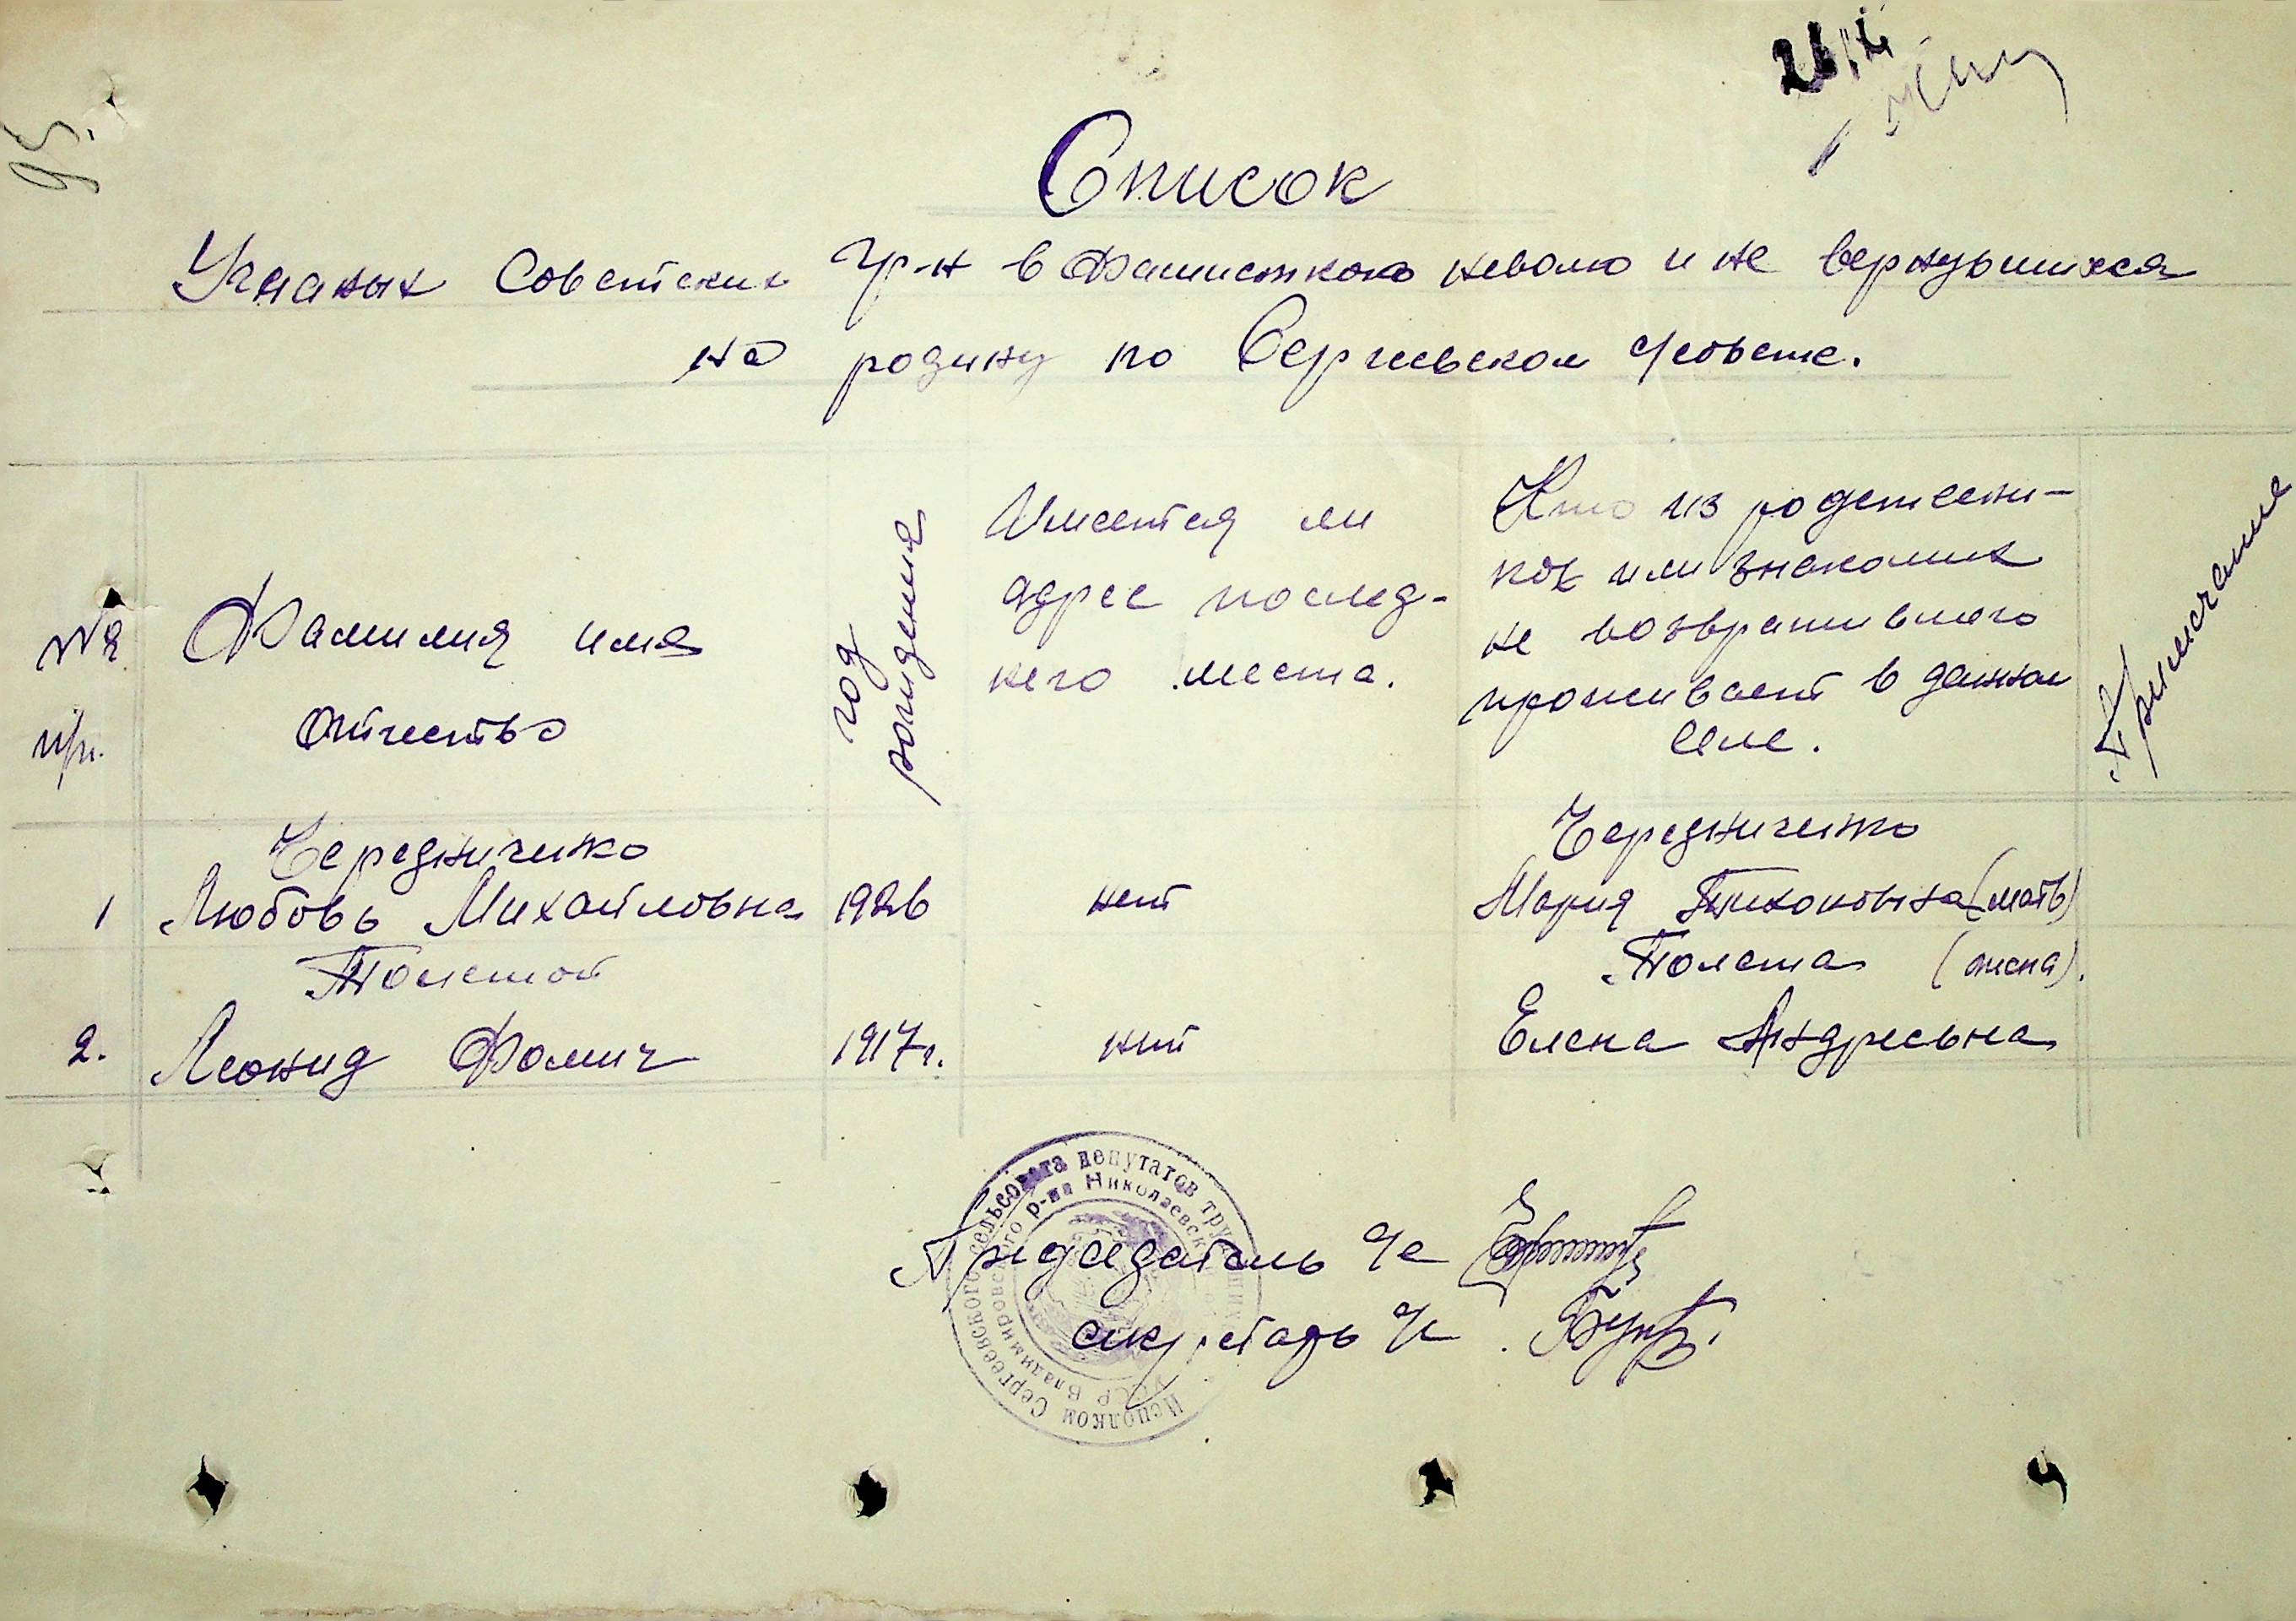 95.
Список
Угнаных Советских гр-н в Фашисткою неволю и не вернувшихся
на родину по Сергиевском с/совете.
№№
п/п.
Фамилия имя
Отчество
год
рождения
Имеется ли
адрес послед-
него места.
Кто из родствени-
ков или знакомих
не возвратившего
проживает в данном
селе.
Примечание
Чередниченко
1 Любовь Михайловна 1926 нет
Чередниченко
Мария Тихоновна (мать)
Толстой
2. Леонид Фомич 1917г. нет
Толста (жена).
Елена Андреевна
Исполком Сергеевского сельсовета депутатов трудящихся
Владимировского р-на Николаевской
УССР
Председатель с/с
секретарь с/с